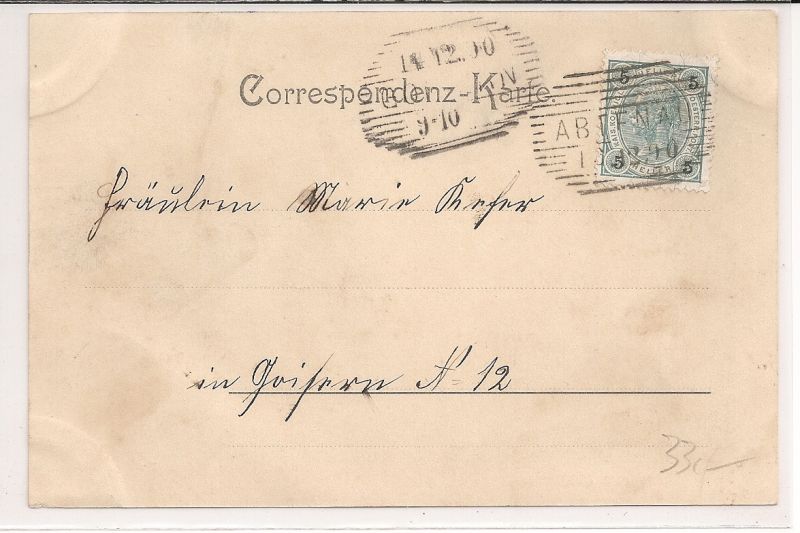 14.12.00
9-10
Correspondenz-Karte.
5 5
5 5
Fräulein Marie Kefer
in Goisern No 12
33